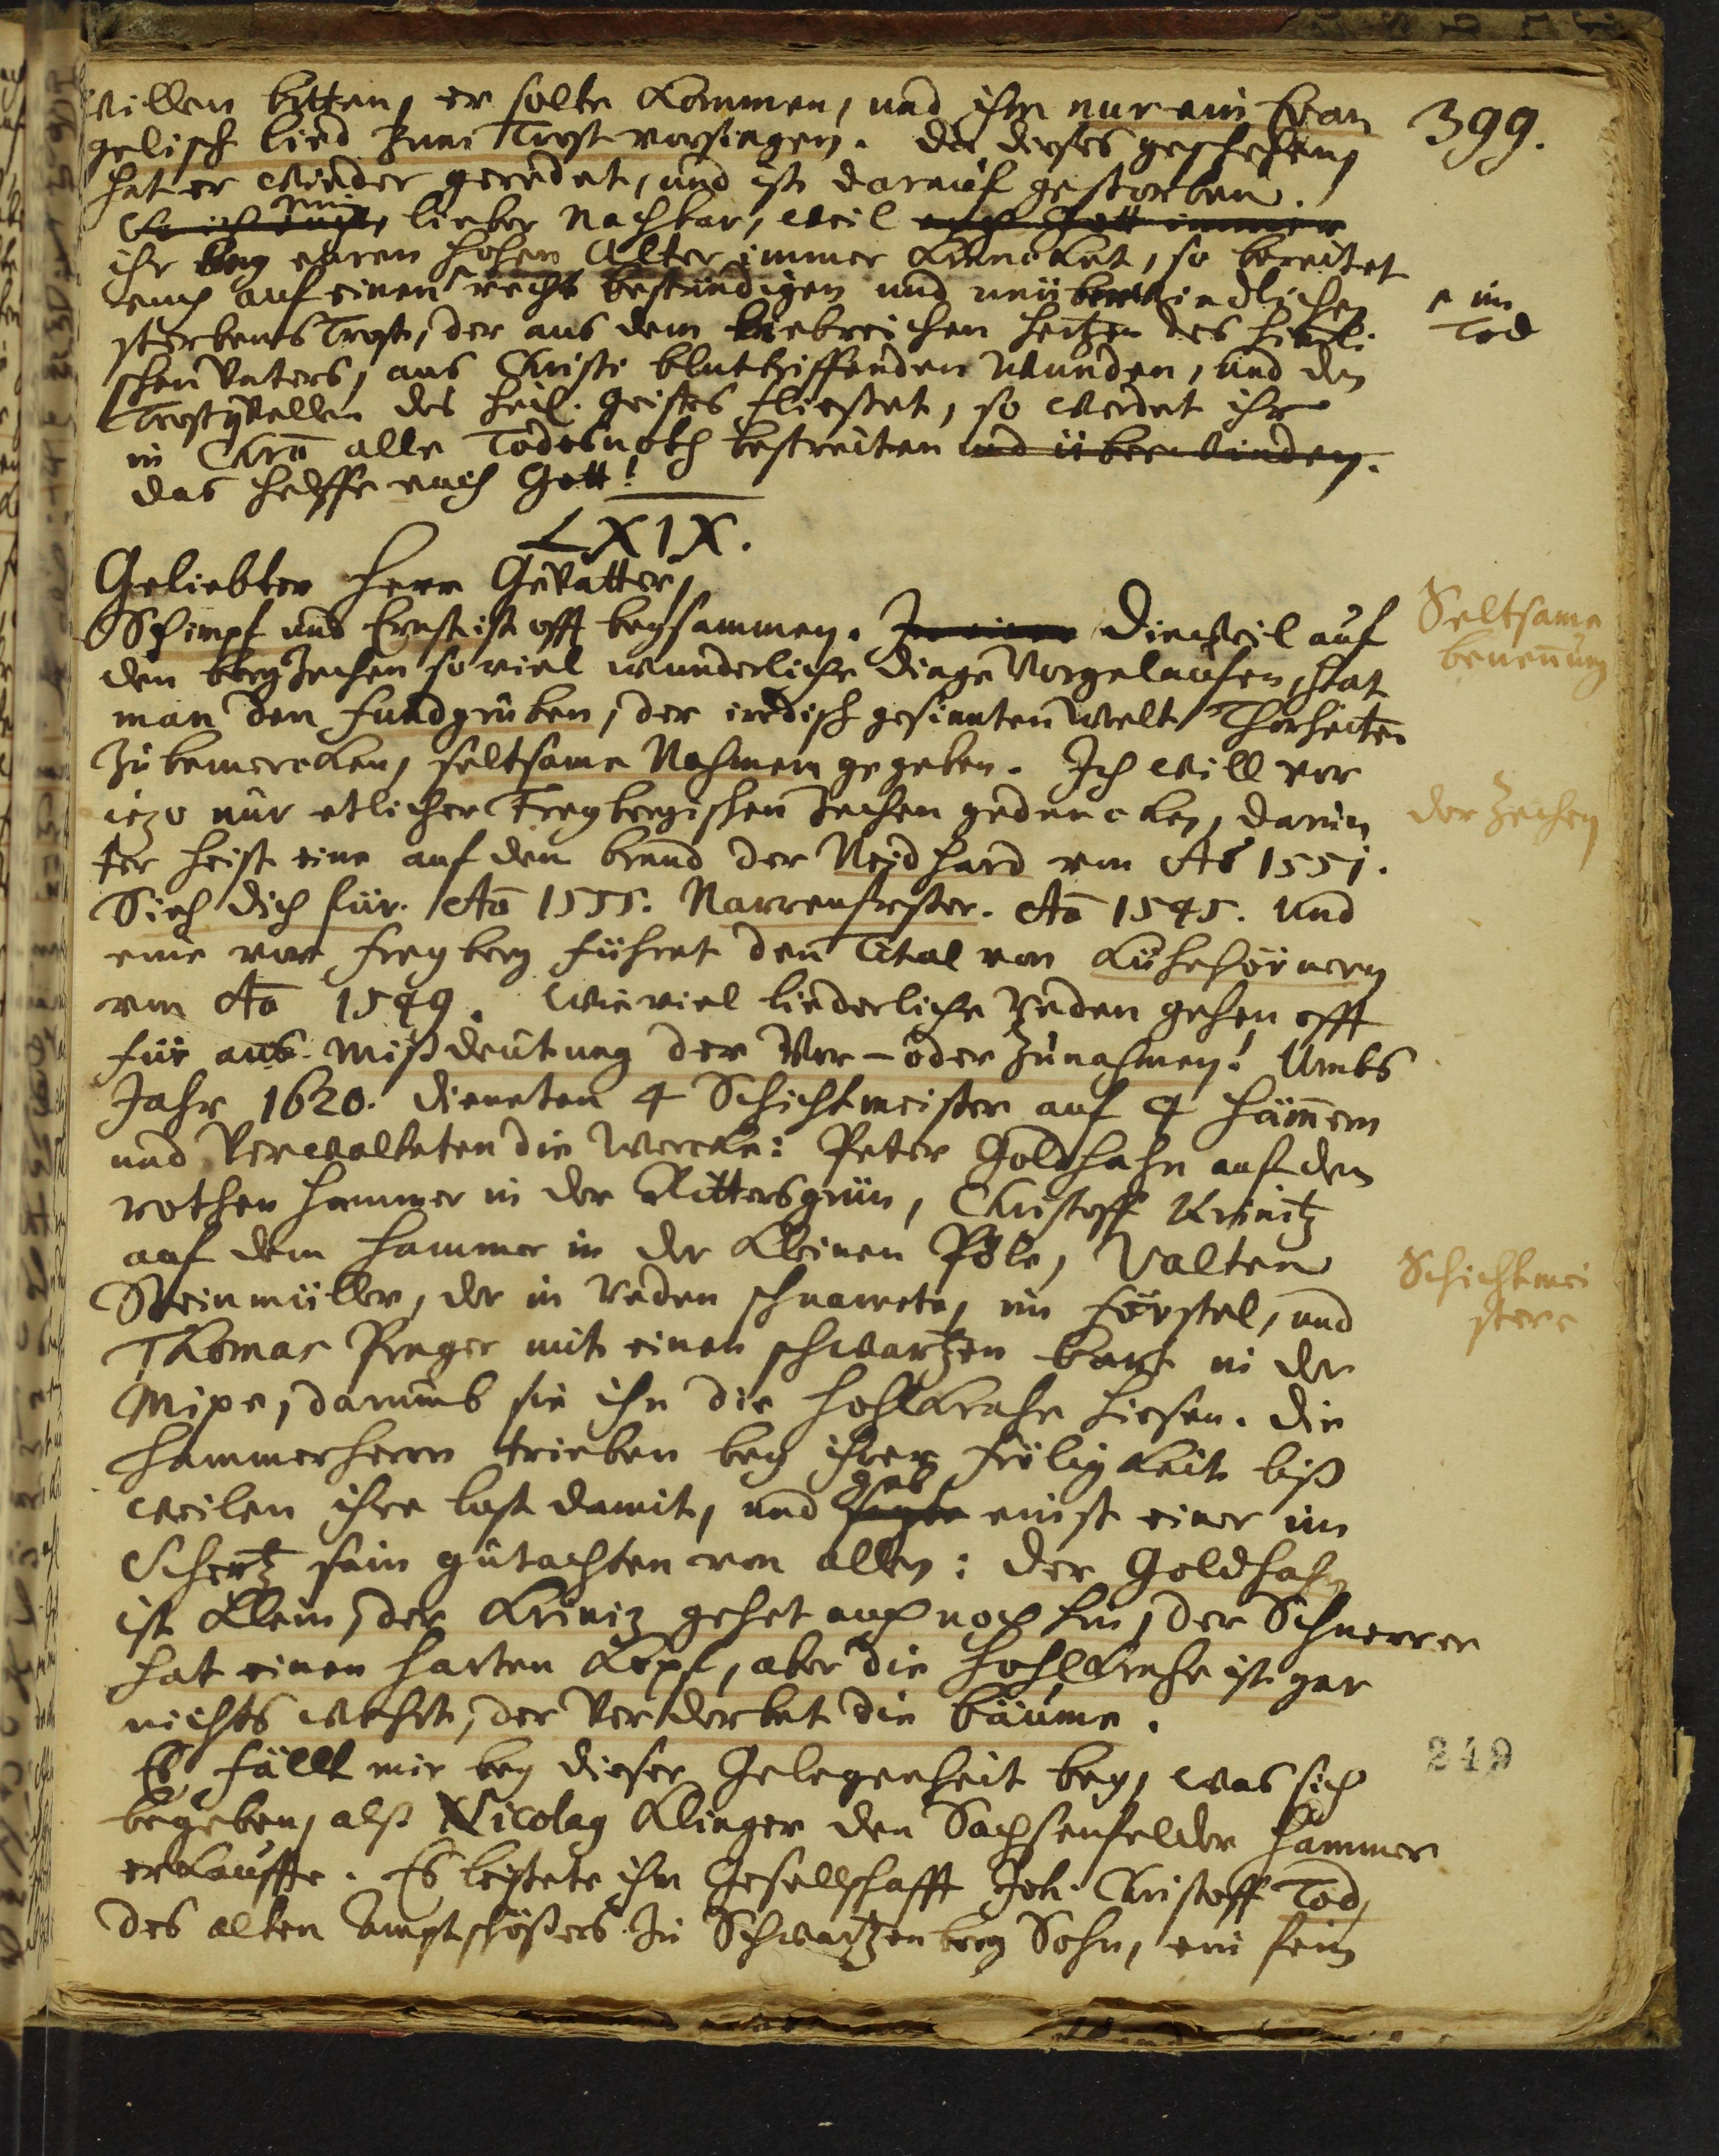 399.
willen bitten, er solte kommen, und ihm nur ein Evan
gelisch lied zum Trost vorsingen. Da dieses geschehen,
hat er wieder geredet, und ist darauf gestorben.
nun lieber Nachbar, weil auch Gott immer
ihr bey euren hohen Alter immer kräncket, so bereitet
euch auf einen recht beständigen und unüberwindlichen
sterbens Trost, der aus dem liebreichen hertzen des himli
im
Tod
schen Vaters, aus Christi bluttrifffenden Wunden, und den
Trostqvellen des heil. Geistes fliesset, so werdet ihr
in Chro alle Todesnoth bestreiten und überwinden.
das helffe euch Gott!
LXIX.
Geliebter Herr Gevatter,
Schimpf und Ernst ist offt beysammen. Dieweil auf
Seltsame
benennung
den bergZechen so viel wunderliche dinge Vorgelaufen, hat
man den fundgruben, der irrdisch gesinnten Welt Thorheiten
zu bemercken, seltsame Nahmen gegeben. Ich will vor
iezo nur etlicher Freybergischen Zechen gedencken, darun
der Zechen
ter heist eine auf den brand der Neidhard von Ao 1551.
Sieh dich für. Ao 1555. Narrenfresser. Ao 1545. und
eine vor freyberg führet den Titul von Kühehörnern
von Ao 1549. Wieviel liederliche Reden gehen offt
für aus Mißdeutung der Vor- oder Zunahmen! Umbs
Jahr 1620. dieneten 4 Schichtmeister auf 4 hämern
und Verwalteten die Wercke: Peter Goldhahn auf den
rothen hammer in der Rittersgrün, Christoff Krinitz
auf dem hammer in der kleinen Pöle, Valten
Schichtmei
stere
Steinmüller, der in Reden schnarrete, im förstel, und
Thomas Preger mit einen schwartzen bart in der
Mipe, darumb sie ihn die hohlkrahe hiesen. die
hammerherrn trieben bey ihrer früligkeit biß
weilen ihre lust damit, und gab sagte einst einer im
Schertz sein gutachten von allen: der Goldhahn
ist klein, der Kriniz gehet auch noch hin, der Schnerrer
hat einen harten kopf, aber die hohlkrahe ist gar
nichts wehrt, der Verderbet die bäume.
Es fällt mir bey dieser Gelegenheit bey, was sich
249
begeben, alß Nicolaq Klinger den Sachsenfelder hammer
erkauffte. Es leistete ihm Gesellschafft Joh. Christoff Tod,
des alten amptschößers zu Schwartzenberg Sohn, ein fein